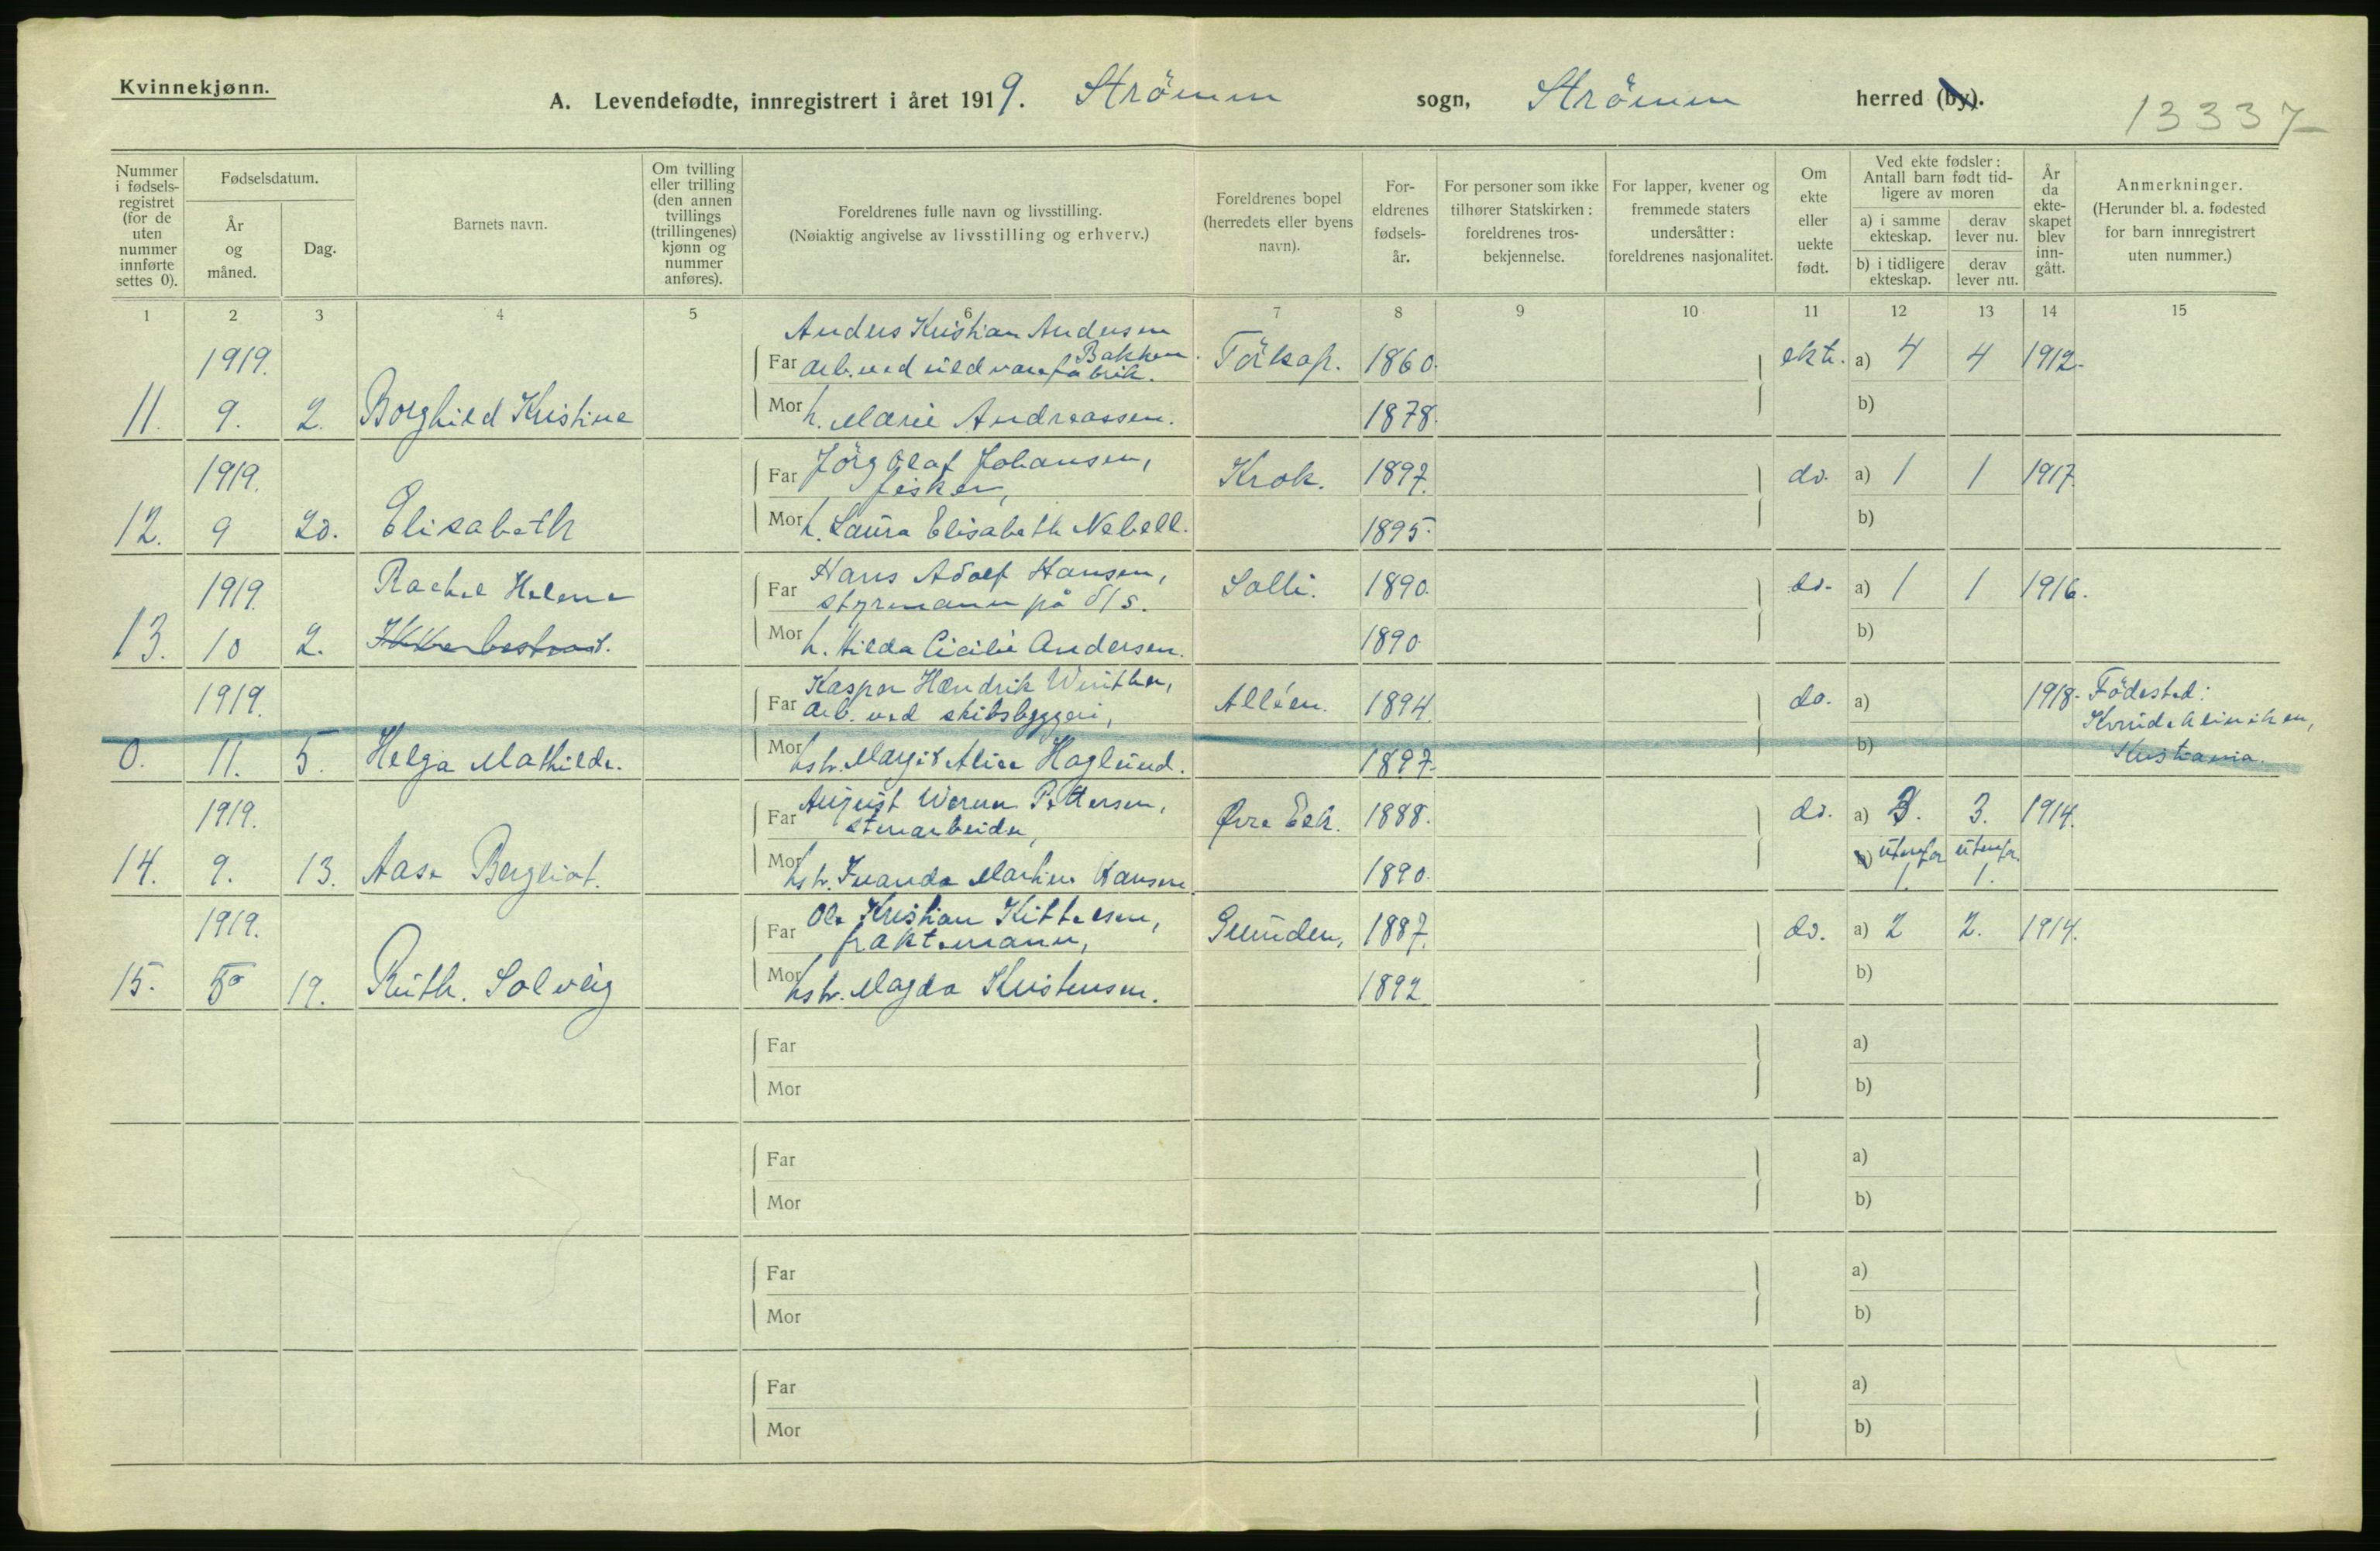 Kvinnekjønn.
A. Levendefødte, innregistrert i året 1919. Strömm sogn, Strömm herred (by).
13337
Nummer i fødselsregistret (for de uten nummer innførte settes 0).
Fødselsdatum.
År og måned.
Dag.
Barnets navn.
Om tvilling eller trilling (den annen tvillings (trillingenes) kjønn og nummer anføres).
Foreldrenes fulle navn og livsstilling.
(Nøiaktig angivelse av livsstilling og erhverv.)
Foreldrenes bopel (herredets eller byens navn).
For-eldrenes fødsels-år.
For personer som ikke tilhører Statskirken: foreldrenes tros-bekjennelse.
For lapper, kvener og fremmede staters undersåtter: foreldrenes nasjonalitet.
Om ekte eller uekte født.
Ved ekte fødsler: Antall barn født tid-ligere av moren
a) i samme ekteskap.
derav lever nu.
b) i tidligere ekteskap.
derav lever nu.
År da ekte-skapet blev inn-gått.
Anmerkninger.
(Herunder bl. a. fødested for barn innregistrert uten nummer.)
1 2 3 4 5 6 7 8 9 10 11 12 13 14 15
Anders Kristian Andersen
1919. Far Arb. ved Bakken. Törkop. 1860. ekte. a) 4 4 1912.
11. 9. 2. Borghild Kristine Mor h. Marie Andreassen. 1878. b)
1919. Far Jörg Olaf Johansen, Krok. 1897. do. a) 1 1 1917.
fisker,
12. 9 20. Elisabeth Mor h. Laura Elisabeth Nebell. 1895. b)
1919. Rachel Helene Far Hans Adolf Hansen, Solli. 1890. do. a) 1 1 1916.
styrmann på d/s.
13. 10 2. Mor h. Hilda Cicilie Andersen. 1890 b)
Kasper Hendrik Winther,
1919. Far arb. ved skibsbyggeri, Alléen. 1894. do. a) 1918. Födested:
Kvindeklinikken,
0. 11. 5. Helga Mathilde. Mor hstr. Margit Alice Haglund. 1897. b) Kristiania.
August Werner Pettersen,
1919. Far stenarbeider, Øvre Eek. 1888. do. a) 3. 3. 1914.
b) utenfor utenfor
14. 9. 13. Aase Bergliot. Mor hstr. Ivanda Martine Hansen 1890. 1. 1.
Ole Kristian Kittelsen,
1919. Far fraktemann, 1887. do. a) 2 2. 1914.
15. 19. Ruth. Solveig Mor hstr. Magda Kristensen. 1892 b)
Far a)
Mor b)
Far a)
Mor b)
Far a)
Mor b)
Far a)
Mor b)